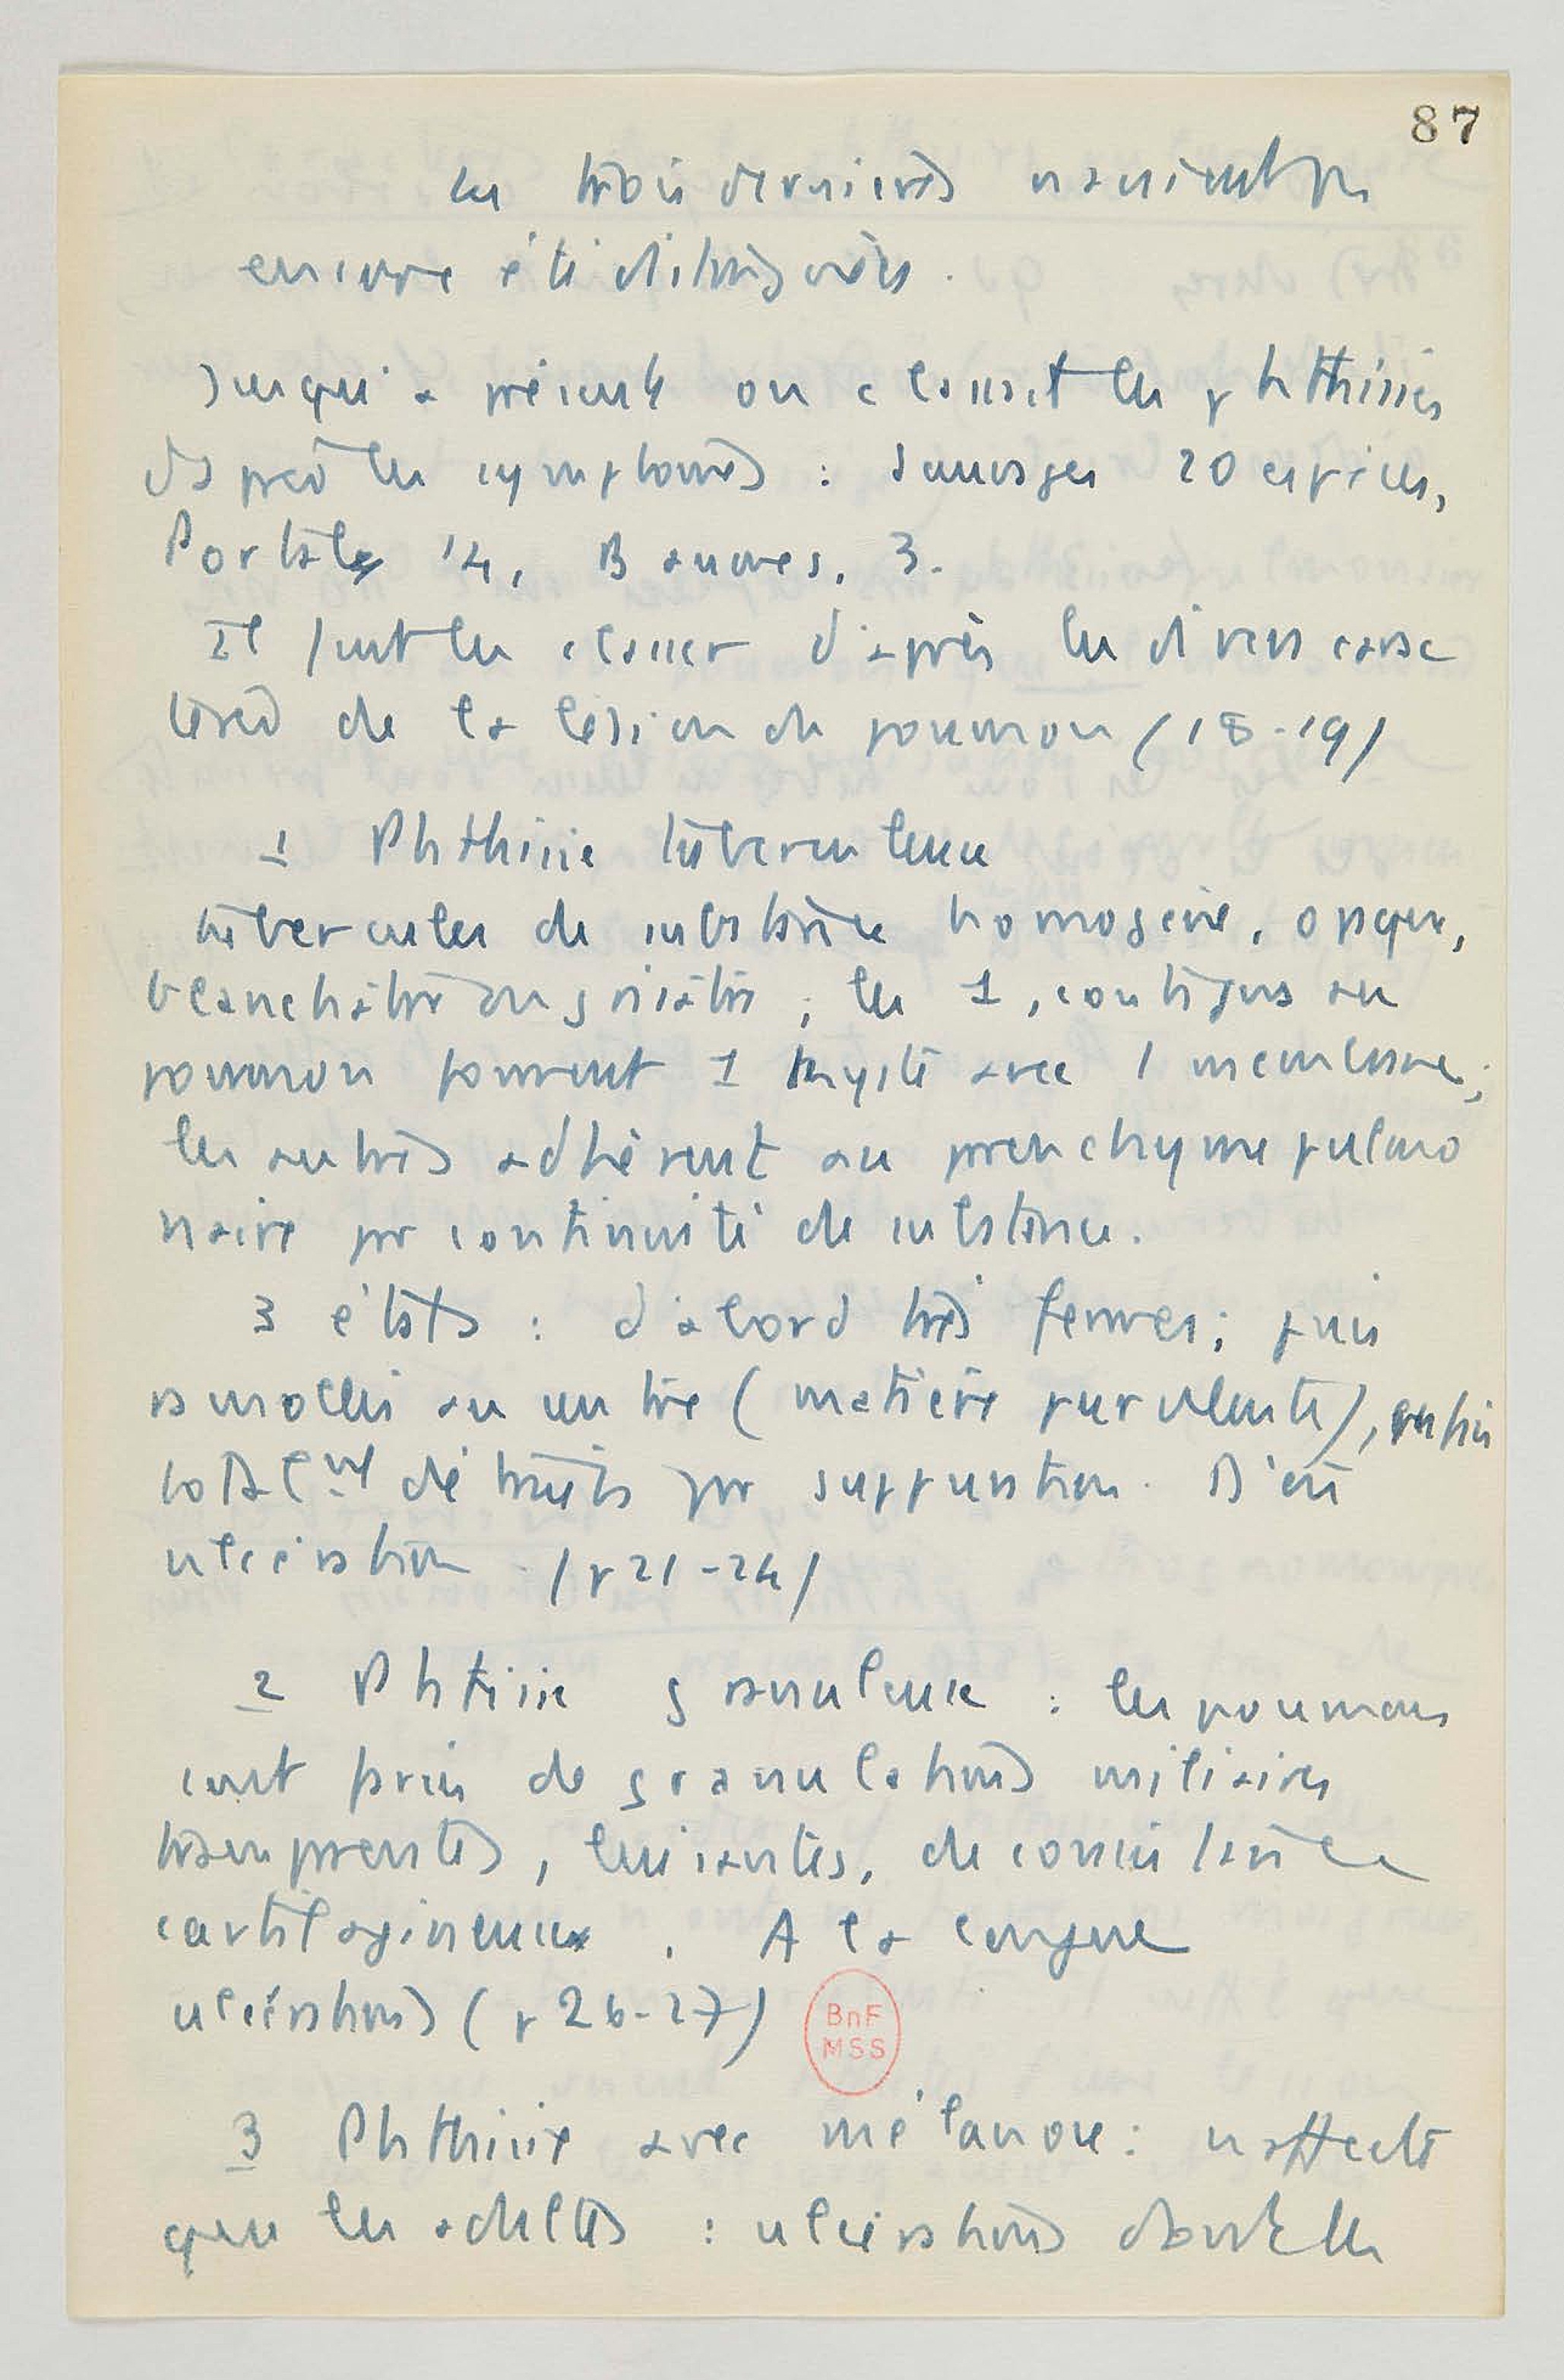 87
les trois dernières n'avaient pas
encore été distinguées.
Jusqu'à présent on classait les phthisies
d'après les symptômes : Sauvages 20 espèces,
Portal 14, Baumes, 3.
Il faut les classer d'après les divers carac
tères de la lésion du poumon (18-19)
1 Phthisie tuberculeuse
tubercules de substance homogène, opaque,
blanchâtre ou grisâtre ; les 1, contigus au
poumon forment 1 kyste avec 1 membrane ;
les autres adhèrent au parenchyme pulmo
naire par continuité de substance.
3 états : d'abord très fermes ; puis
ramollis au centre (matière purulente), enfin
totalnt détruits par suppuration. D'où
ulcération (p 21-24)
2 Phtisie granuleuse : les poumons
sont farcis de granulations miliaires
transparentes, luisantes, de consistance
cartilagineuse . A la longue
ulcérations (p 26-27)
BnF
MSS
3 Phthisie avec mélanose : n'affecte
que les adultes : ulcérations dont les